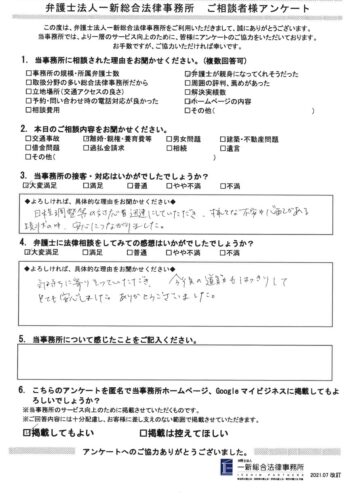 弁護士法人一新総合法律事務所　ご相談者様アンケート
この度は、弁護士法人一新総合法律事務所をご利用いただきまして、誠にありがとうございます。
当事務所では、より一層のサービス向上のために、皆様にアンケートのご協力をいただいております。
お手数ですが、ご協力いただければ幸いです。
1. 当事務所に相談された理由をお聞かせください。（複数回答可）
□事務所の規模・所属弁護士数　□弁護士が親身になってくれそうだった
□取扱分野の多い総合法律事務所だから　□周囲の評判、薦めがあった
□立地場所（交通アクセスの良さ）　□解決実績数
□予約・問い合わせ時の電話対応が良かった　□ホームページの内容
□相談費用　□その他（　）
2. 本日のご相談内容をお聞かせください。
□交通事故　☑離婚・親権・養育費用　□男女問題　□建築・不動産問題
□借金問題　□過払金請求　□相続　□遺言
□その他（　）
3. 当事務所の接客・対応はいかがでしたでしょうか？
☑大変満足　□満足　□普通　□やや不満　□不満
◆よろしければ、具体的な理由をお聞かせください◆
日程調整等の対応を迅速にしていただき、様々な不安や心配がある
現状の中、安心につながりました。
4. 弁護士に法律相談をしてみての感想はいかがでしたでしょうか？
☑大変満足　□満足　□普通　□やや不満　□不満
◆よろしければ、具体的な理由をお聞かせください◆
気持ちに寄りそっていただき、今後の道筋もはっきりして
とても安心しました。ありがとうございました。
5. 当事務所について感じたことをご記入ください。
6. こちらのアンケートを匿名で当事務所ホームページ、Googleマイビジネスに掲載してもよ
ろしいでしょうか？
※当事務所のサービス向上のために掲載させていただくものです。
※ご回答内容には十分配慮し、お客様に差し支えのない範囲で掲載させていただきます。
☑掲載してもよい　□掲載は控えてほしい
アンケートへのご協力ありがとうございました。
弁護士法人
一新総合法律事務所
2021.07 改訂